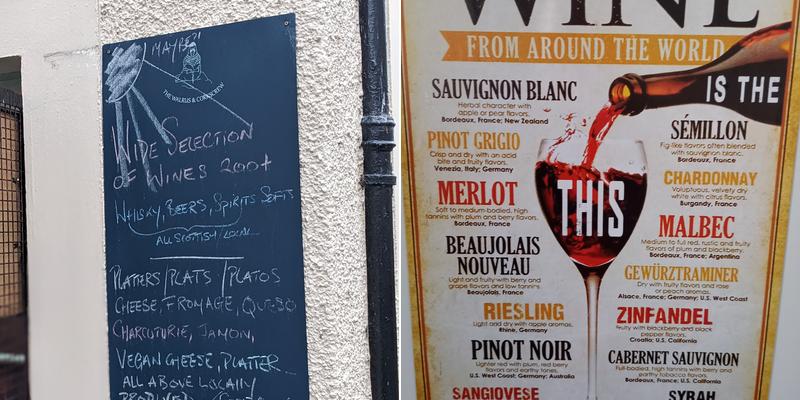 MAYBE?!
THE WALRUS & CORKSCREW
WIDE SELECTION
OF WINES 200+
WHISKY, BEERS, SPIRITS SOFTS
ALL SCOTTISH/LOCAL
PLATTERS/PLATS/PLATOS
CHEESE, FROMAGE, QUESO
CHARCUTURIE, JAMON,
VEGAN CHEESE, PLATTER
ALL ABOVE LOCALLY
WINE
FROM AROUND THE WORLD
IS THE
THIS
SAUVIGNON BLANC
Herbal character with
apple or pear flavors.
Bordeaux, France; New Zealand
PINOT GRIGIO
Crisp and dry with an acid
bite and fruity flavors.
Venezia, Italy; Germany
MERLOT
Soft to medium-bodied, high
tannins with plum and berry flavors.
Bordeaux, France
BEAUJOLAIS
NOUVEAU
Light and fruity with berry and
grape flavors and low tannins.
Beaujolais, France
RIESLING
Light and dry with apple aromas.
Rhine, Germany
PINOT NOIR
Lighter red with plum, red berry
flavors and earthy tones.
U.S. West Coast; Germany; Australia
SANGIOVESE
SÉMILLON
Fig-like flavors often blended
with sauvignon blanc.
Bordeaux, France
CHARDONNAY
Voluptuous, velvety dry
white with citrus flavors.
Burgandy, France
MALBEC
Medium to full red, rustic and fruity
flavors of plum and blackberry.
Bordeaux, France; Argentina
GEWÜRZTRAMINER
Dry with fruity flavors and rose
or peach aromas.
Alsace, France; Germany; U.S. West Coast
ZINFANDEL
Fruity with blackberry and black
pepper flavors.
Croatia; U.S. California
CABERNET SAUVIGNON
Full-bodied, high tannins with berry and
earthy tobacco flavors.
Bordeaux, France; U.S. California
SYRAH